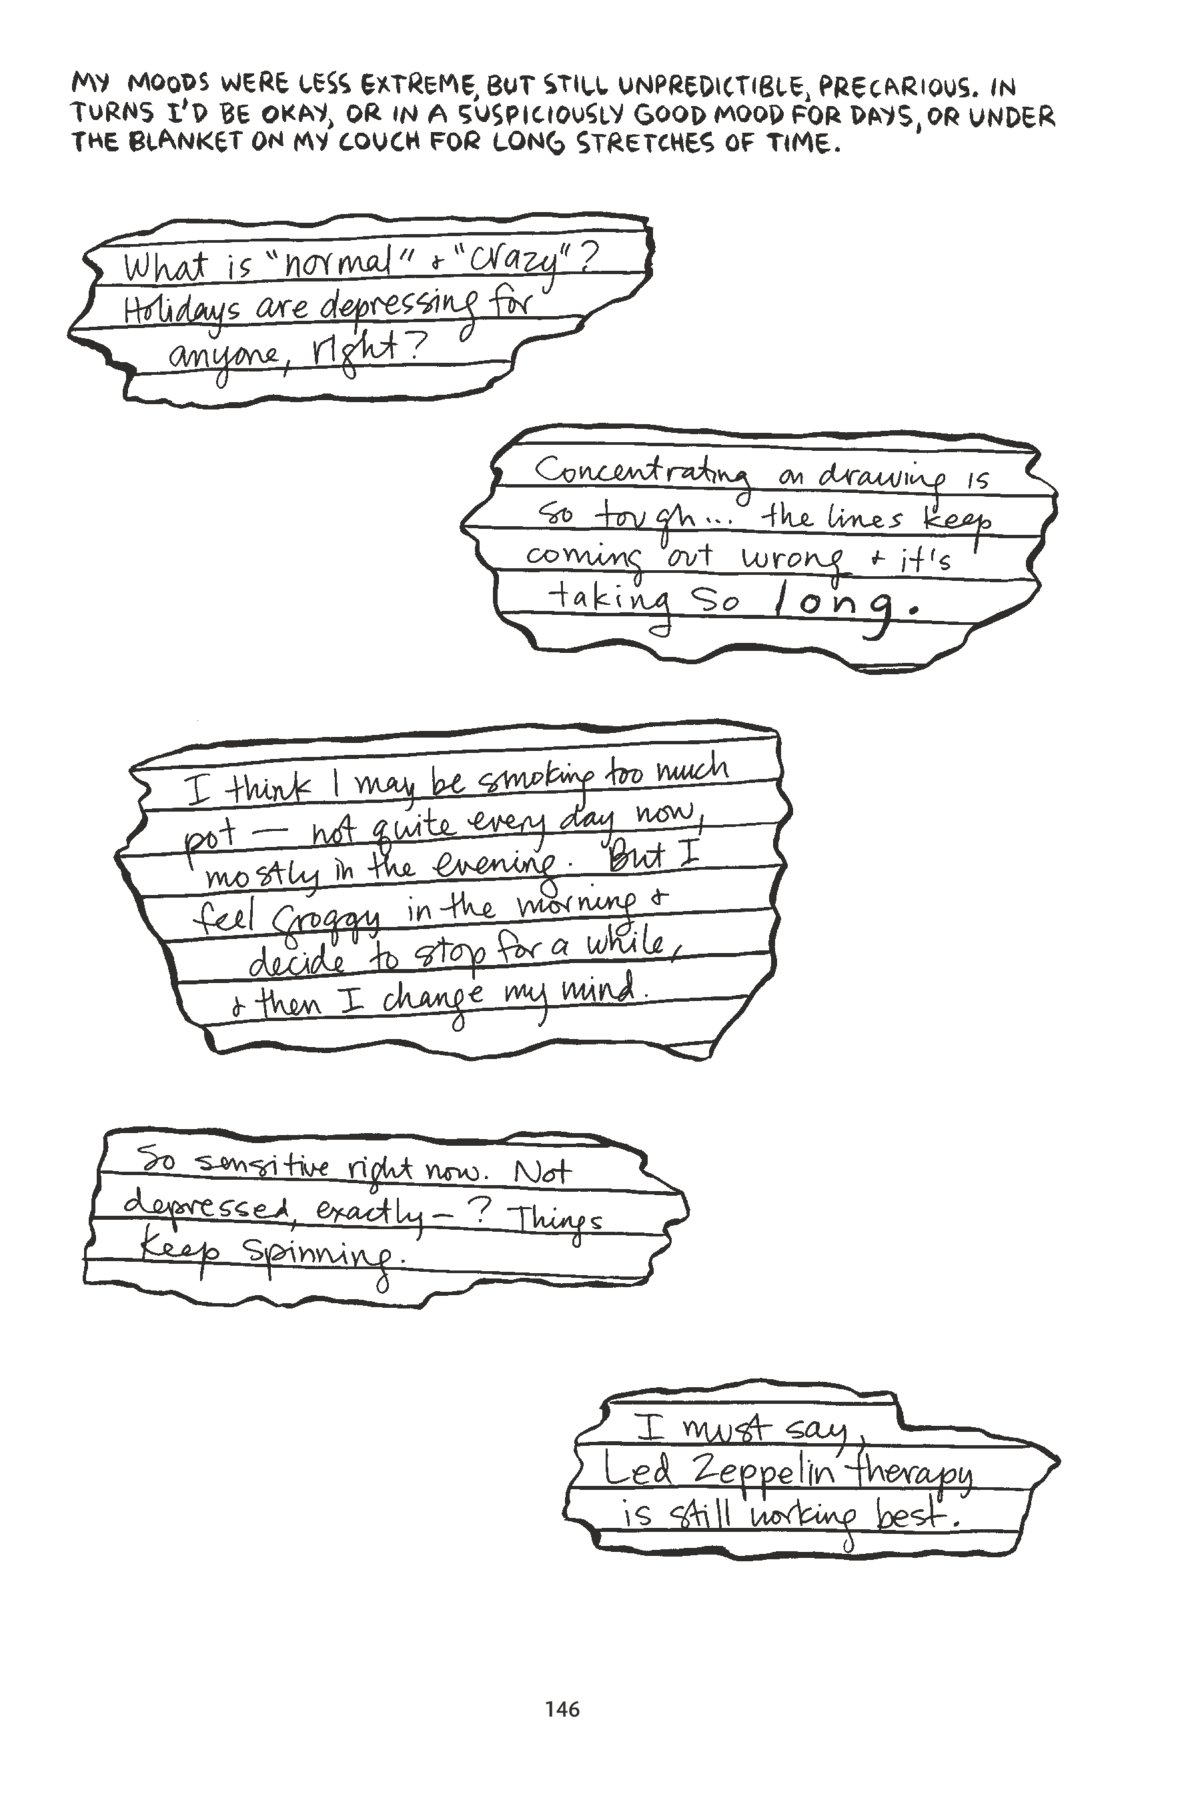 MY MOODS WERE LESS EXTREME, BUT STILL UNPREDICTIBLE, PRECARIOUS. IN
TURNS I'D BE OKAY, OR IN A SUSPICIOUSLY GOOD MOOD FOR DAYS, OR UNDER
THE BLANKET ON MY COUCH FOR LONG STRETCHES OF TIME.
What is "normal" + "crazy"?
Holidays are depressing for
anyone, right?
Concentrating on drawing is
so tough... the lines keep
coming out wrong + it's
taking so long.
I think I may be smoking too much
pot — not quite every day now,
mostly in the evening. But I
feel groggy in the morning +
decide to stop for a while,
+ then I change my mind.
So sensitive right now. Not
depressed, exactly — ? Things
keep spinning.
I must say,
Led Zeppelin therapy
is still working best.
146